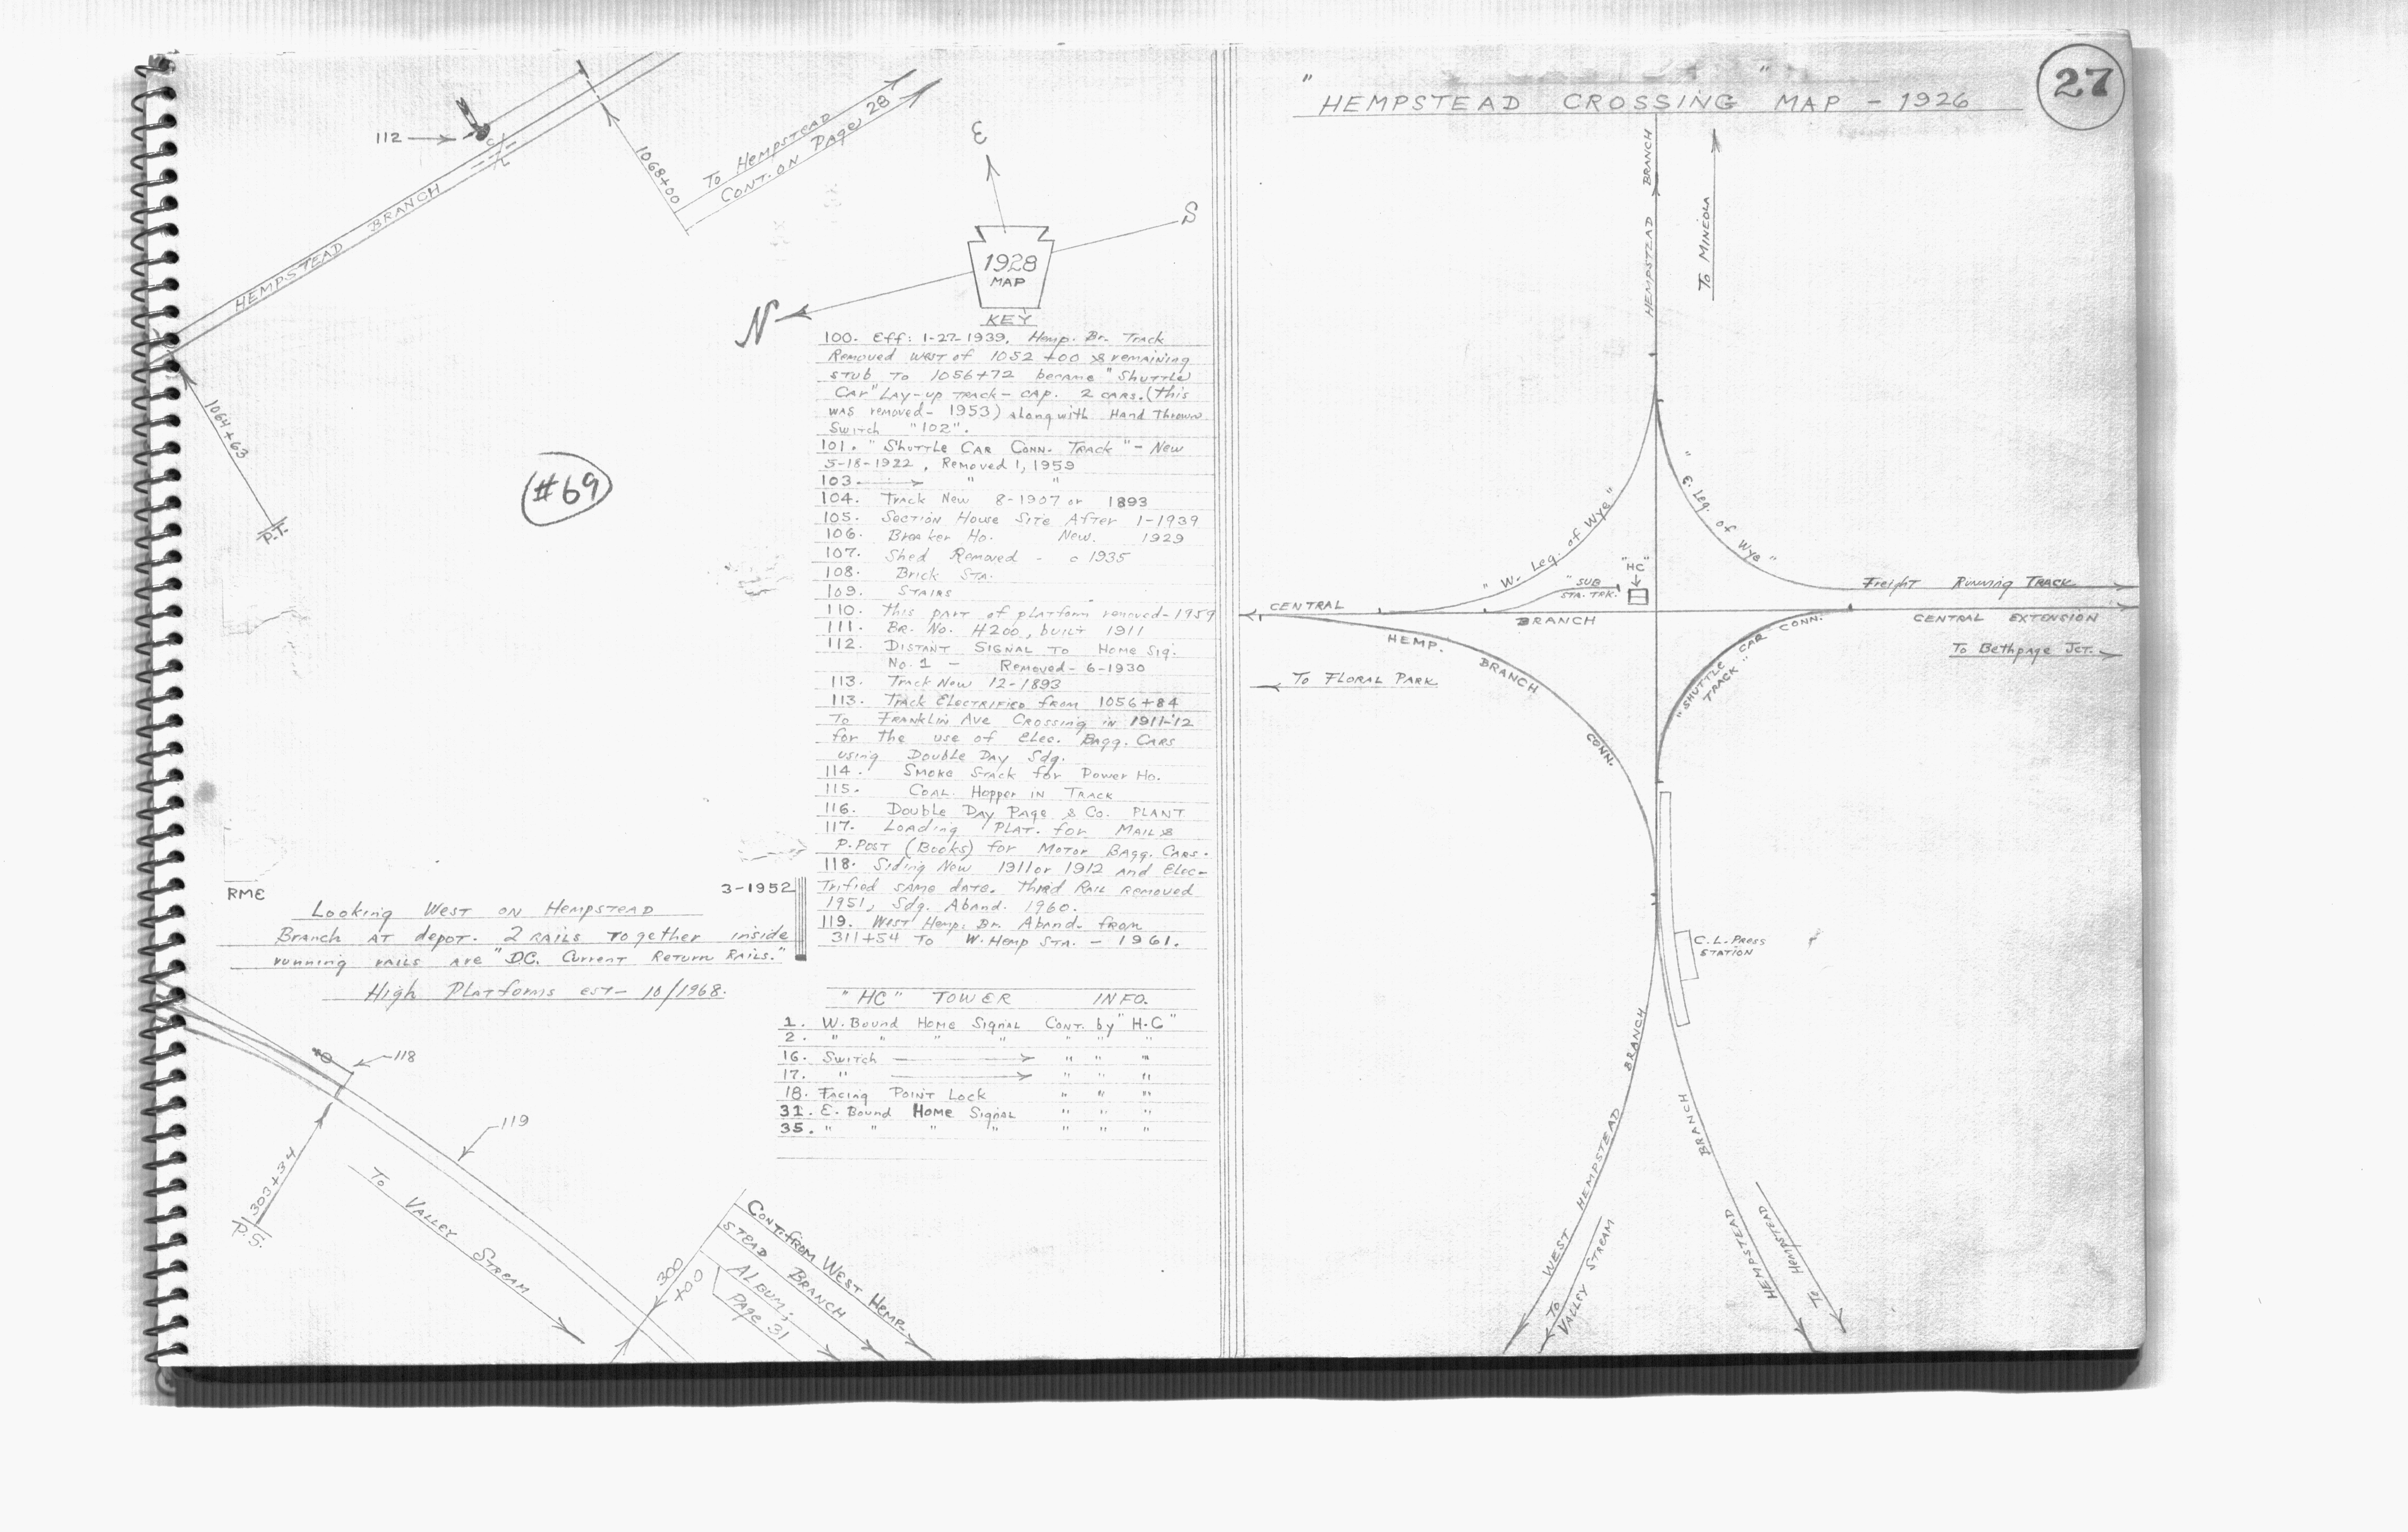 112
HEMPSTEAD BRANCH
1068+00
To Hempstead
Cont. on Page 28
1064+63
P.T.
#69
E
S
N
1928
MAP
KEY
100. Eff: 1-27-1939, Hemp. Br. Track
Removed west of 1052+00 & remaining
stub to 1056+72 became "Shuttle
Car" Lay-up track - cap. 2 cars. (this
was removed - 1953) along with Hand Thrown
Switch "102".
101. "Shuttle Car Conn. Track" - New
5-18-1922, Removed 1, 1959
103. " "
104. Track New 8-1907 or 1893
105. Section House Site After 1-1939
106. Breaker Ho. New. 1929
107. Shed Removed - c 1935
108. Brick Sta.
109. Stairs
110. this part of platform removed-1959
111. Br. No. H200, built 1911
112. Distant Signal to Home Sig.
No. 1 - Removed - 6-1930
113. Track New 12-1893
113. Track Electrified from 1056+84
To Franklin Ave Crossing in 1911-'12
for the use of Elec. Bagg. Cars
using Double Day Sdg.
114. Smoke Stack for Power Ho.
115. Coal Hopper in Track
116. Double Day Page & Co. PLANT
117. Loading Plat. for Mail &
P. Post (Books) for Motor Bagg. Cars.
118. Siding New 1911 or 1912 and Elec-
Trified same date. third Rail removed
1951, Sdg. Aband. 1960.
119. West Hemp. Br. Aband. from
311+54 To W. Hemp Sta. - 1961.
RME
3-1952
Looking West on Hempstead
Branch at depot. 2 rails together inside
running rails are "D.C. Current Return Rails."
High Platforms est- 10/1968.
"HC" TOWER INFO.
1. W. Bound Home Signal Cont. by "H-C"
2. " " " " " " "
16. Switch " " "
17. " " " "
18. Facing Point Lock " " "
31. E. Bound Home Signal " " "
35. " " " " " " "
118
119
303+34
P.S.
To Valley Stream
300
+00
Cont. from West Hemp-
stead Branch
Album;
Page 31
27
"HEMPSTEAD CROSSING MAP - 1926"
HEMPSTEAD BRANCH
To Mineola
"W. Leg. of Wye"
"E. Leg. of Wye"
"HC"
"SUB
STA. TRK."
Freight Running Track
CENTRAL BRANCH
CENTRAL EXTENSION
To Bethpage Jct.
HEMP. BRANCH CONN.
To Floral Park
"SHUTTLE CAR CONN.
TRACK"
C.L. Press
Station
WEST HEMPSTEAD BRANCH
To
Valley Stream
HEMPSTEAD BRANCH
To Hempstead